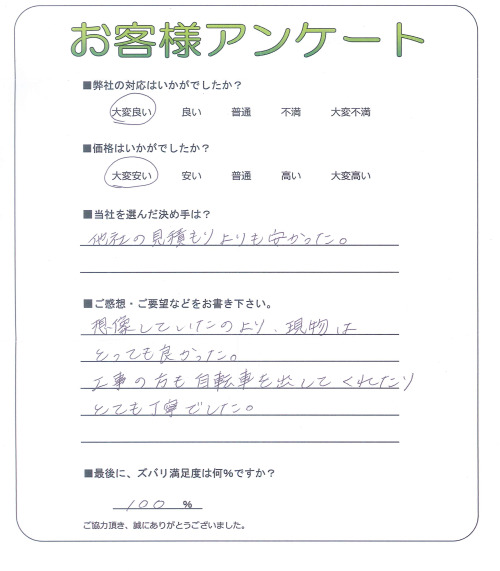 お客様アンケート
■弊社の対応はいかがでしたか？
大変良い 良い 普通 不満 大変不満
■価格はいかがでしたか？
大変安い 安い 普通 高い 大変高い
■当社を選んだ決め手は？
他社の見積もりよりも安かった。
■ご感想・ご要望などをお書き下さい。
想像していたのより、現物は
とっても良かった。
工事の方も自転車を出してくれたり
とても丁寧でした。
■最後に、ズバリ満足度は何%ですか？
100 %
ご協力頂き、誠にありがとうございました。